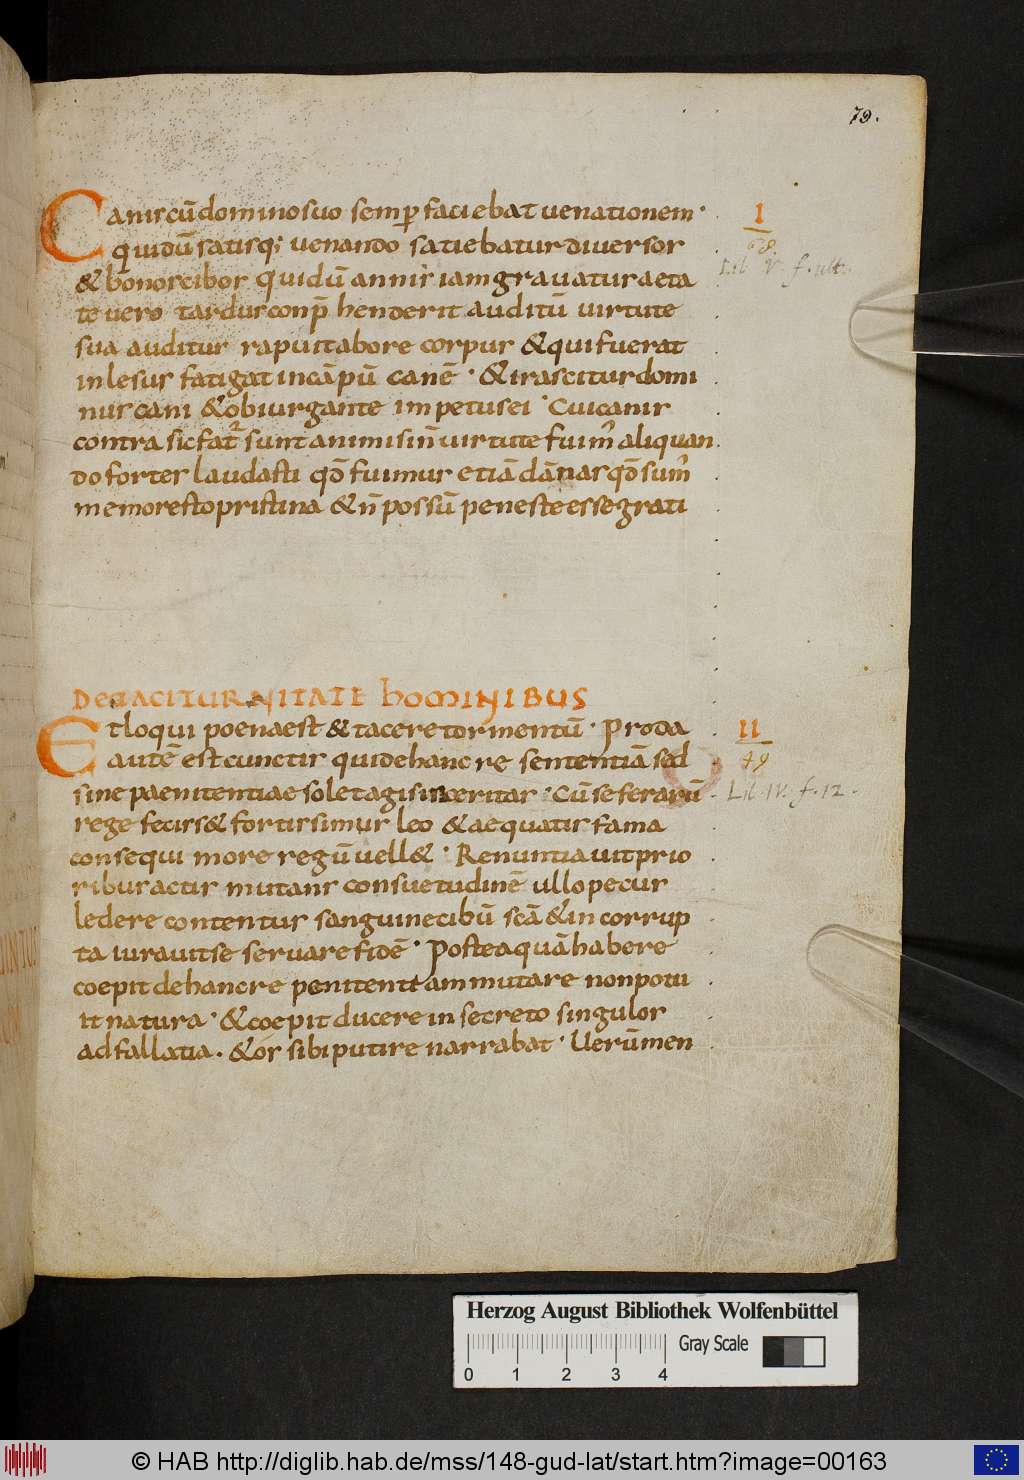 79.
Canis cū domino suo semꝑ faciebat uenationem·
qui dū satisq; uenando satiebatur diuersos
& bonos cibos quidū annis iam grauatur aeta
te uero tardus conp̄henderit auditū uirtute
sua auditur rapuit labore corpus & qui fuerat
inlesus fatigat incāpū canē· & irascitur domi
nus cani & obiurgante impetus ei· Cui canis
contra sic fat̄ sunt animi sin̄ uirtute fuim̄ aliquan
do fortes laudasti qd̄ fuimus etiā dānas qd̄ sum̄
memor esto pristina & n̄ possū peneste esse grati
I
68.
Lib V. f. ult.
DE TACITURNITATE hOMINIBUS
Et loqui poena est & tacere tormentū· Proda
autē est cunctis qui de hanc re sententiā sed
sine paenitentiae solet agi sinceritas· Cū se ferarū
rege feciss& fortissimus leo & aequatis fama
consequi more regū uell&· Renuntiauit prio
ribus actis mutans consuetudinē ullo pecus
ledere contentus sanguine cibū scā & incorrup
ta iurauit se seruare fidē· Posteaquā habere
coepit de hanc re penitentiam mutare non potu
it natura· & coepit ducere in secreto singulos
ad fallatia. & os sibi putire narrabat· Uerūmen
II
49
Lib. IV. f. 12.
Herzog August Bibliothek Wolfenbüttel
Gray Scale
0 1 2 3 4
© HAB http://diglib.hab.de/mss/148-gud-lat/start.htm?image=00163